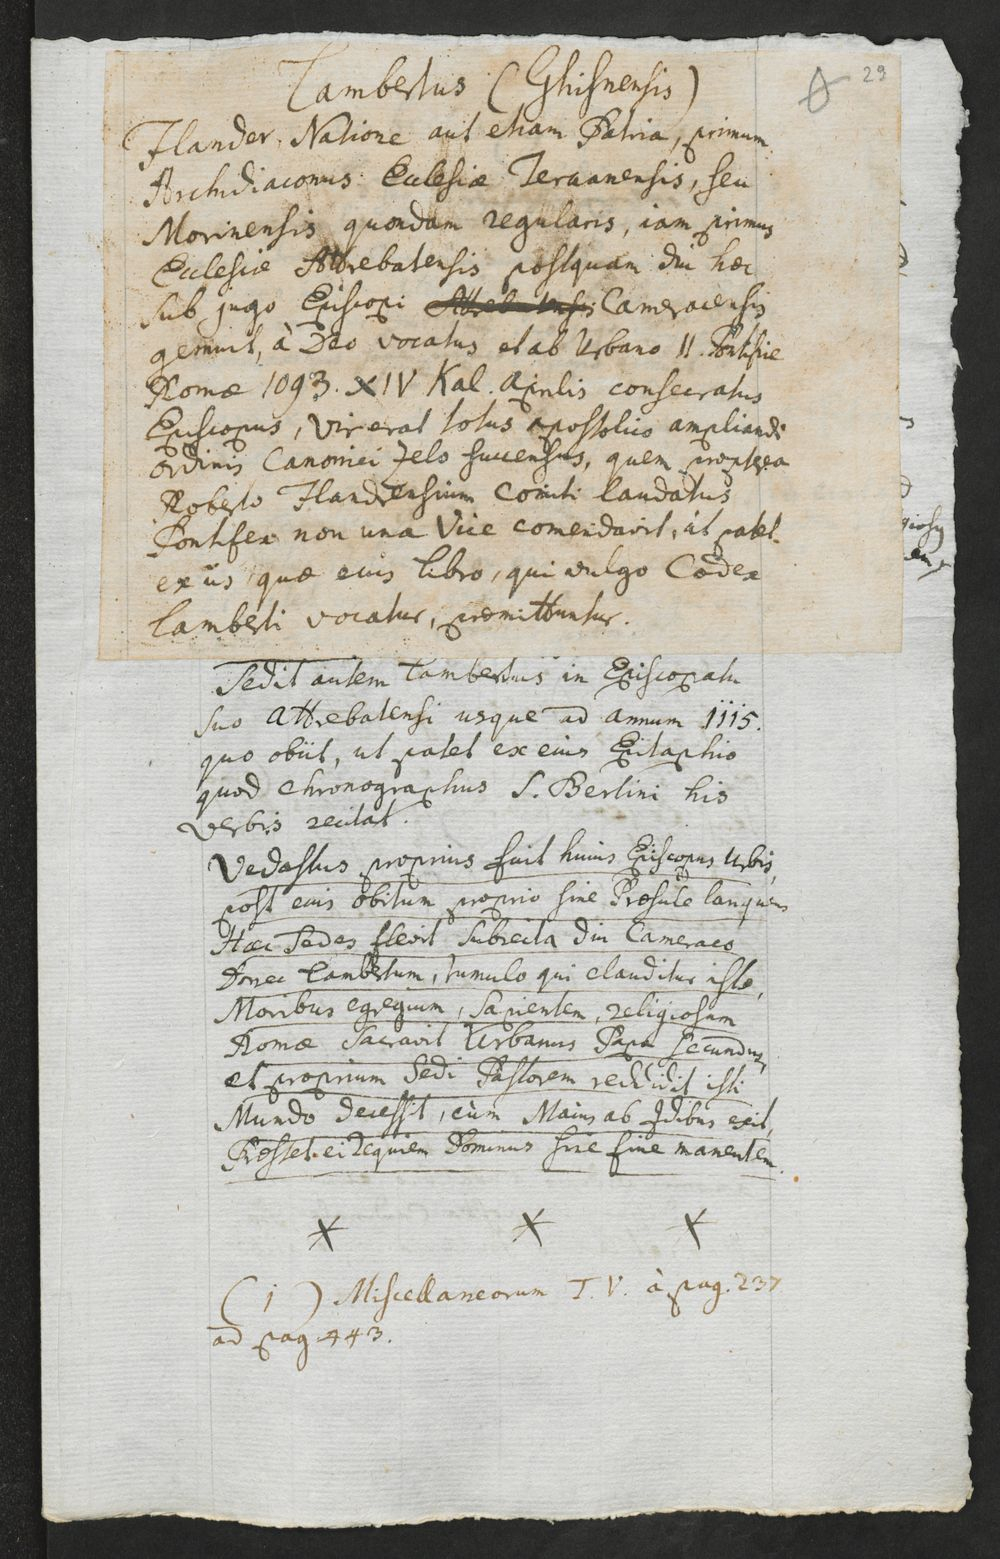 29
Lambertus (Ghisnensis)
Flander Natione aut etiam Patria, primum
Archidiaconus Ecclesiæ Teruanensis, seu
Morinensis quondam regularis, iam primus
Ecclesiæ Attrebatensis postquam diu hæc
sub jugo Episcopi Attrebatensis Cameracensis
gemuit, à Deo vocatus et ab Urbano II. Pontifice
Romæ 1093. XIV Kal. Aprilis consecratus
Episcopus, Vir erat totus apostolico ampliandi
ordinis Canonici zelo succensus, quem propterea
Roberto Flandrensium Comiti laudatus
Pontifex non una Vice comendavit, ut patet
ex iis, quæ eius libro, qui vulgo Codex
Lamberti vocatur, præmittuntur.
Sedit autem Lambertus in Episcopatu
suo Attrebatensi usque ad annum 1115.
quo obiit, ut patet ex eius Epitaphio
quod Chronographus S. Bertini his
verbis recitat.
Vedastus proprius fuit huius Episcopus Urbis,
post eius obitum proprio sine Præsule languens
Hæc Sedes flevit subiecta diu Cameraco
Donec Lambertum, tumulo qui clauditur isto,
Moribus egregium, sapientem, religiosum
Romæ Sacravit Urbanus Papa secundus,
et proprium Sedi Pastorem reddidit isti
Mundo decessit, cùm Maius ab Idibus exit,
Præstet ei requiem Dominus sine fine manentem.
(1) Miscellaneorum T. V. à pag. 237
ad pag 443.